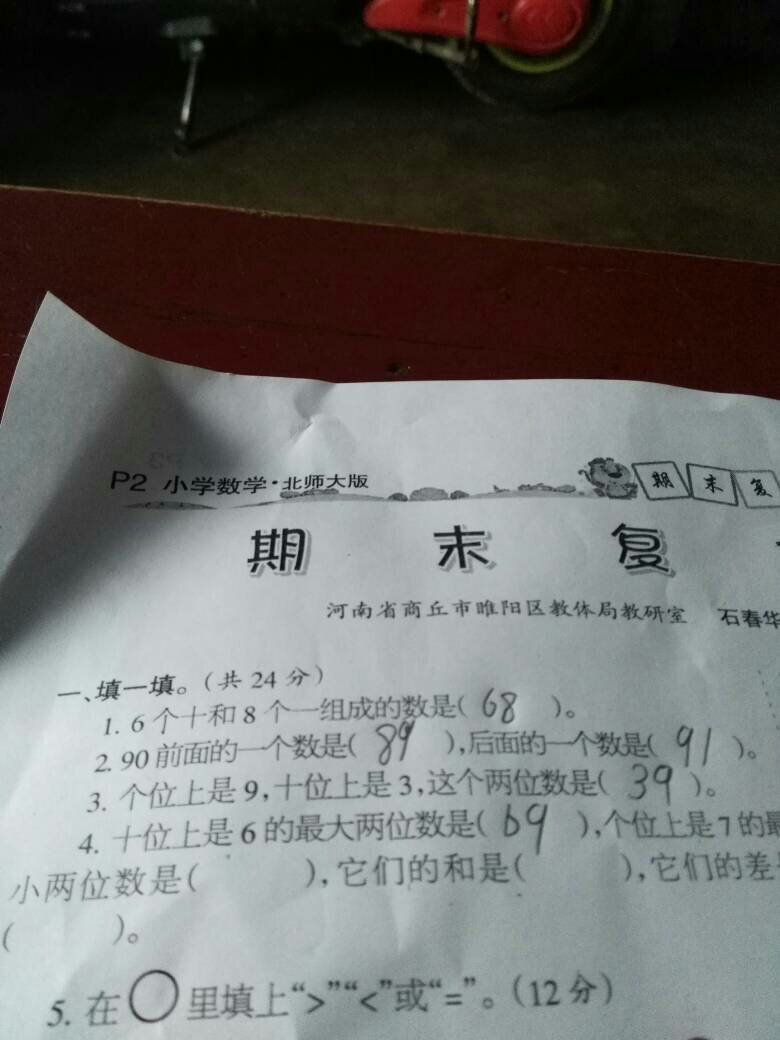 P2 小学数学·北师大版
期 末 复
期 末 复
河南省商丘市睢阳区教体局教研室 石春华
一、填一填。(共 24 分)
1. 6 个十和 8 个一组成的数是( 68 )。
2. 90 前面的一个数是( 89 ),后面的一个数是( 91 )。
3. 个位上是 9,十位上是 3,这个两位数是( 39 )。
4. 十位上是 6 的最大两位数是( 69 ),个位上是 7 的最
小两位数是( ),它们的和是( ),它们的差
( )。
5. 在○里填上“>”“<”或“=”。(12 分)